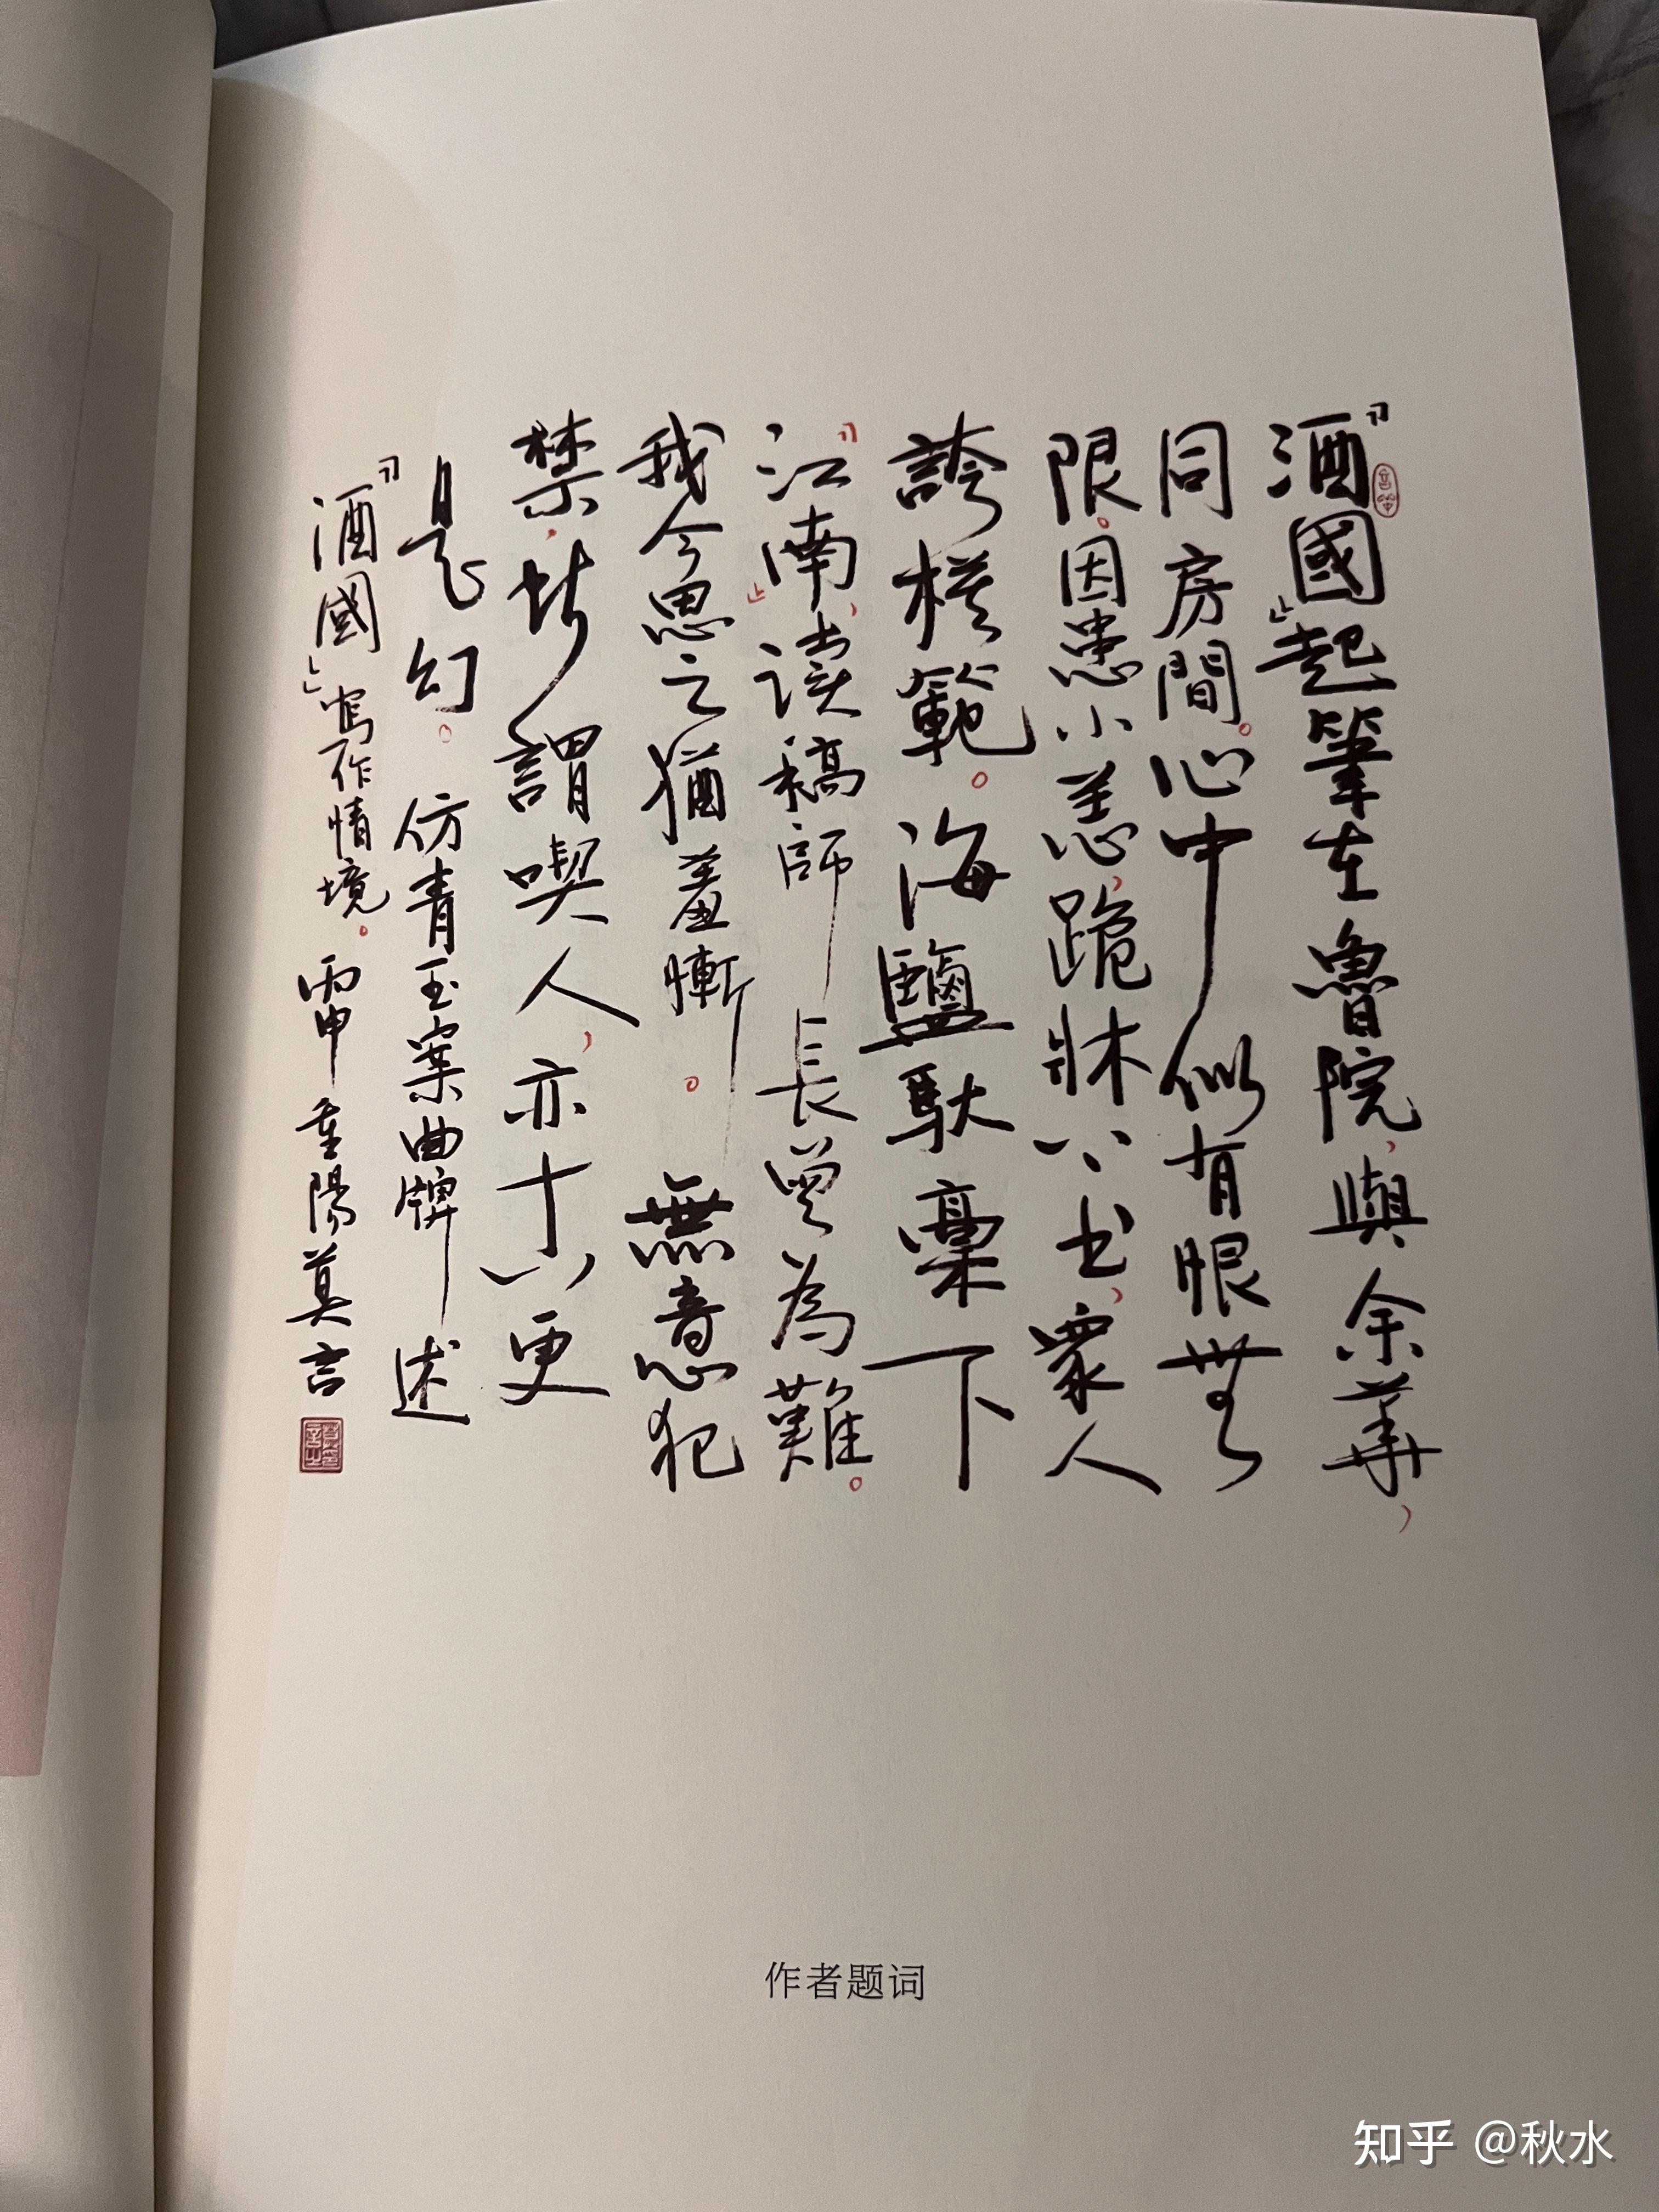 『酒國』起筆在魯院,與余華,
同房間。心中似有恨無
限。因患小恙,跪牀八书,衆人
誇模範。海鹽馱稾下
『江南』,读稿師長曾為難。
我今思之猶羞慚。無意犯
禁,所謂喫人,亦更
是幻。仿青玉案曲牌述
『酒國』写作情境。丙申重陽莫言
作者题词
知乎 @秋水